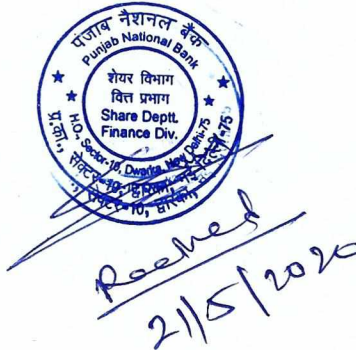 पंजाब नैशनल बैंक
Punjab National Bank
शेयर विभाग
वित्त प्रभाग
Share Deptt.
Finance Div.
H.O., Sector-10, Dwarka, New Delhi-75
प्र.का., सेक्टर-10, द्वारका, नई दिल्ली-75
21/5/2020